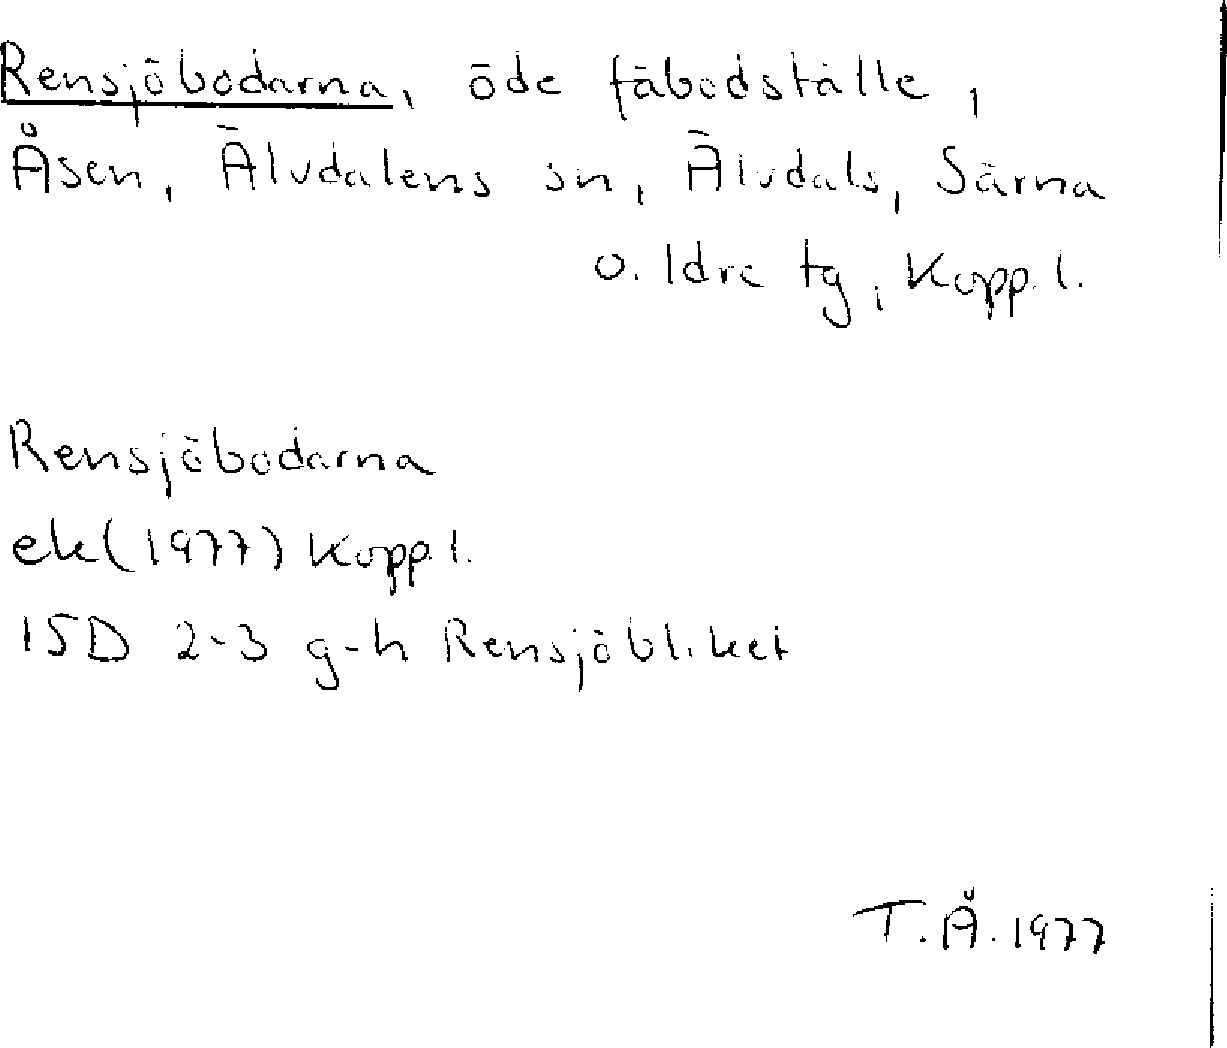 Rensjöbodarna, öde fäbodställe,
Åsen, Älvdalens sn, Älvdals, Särna
o. Idre tg, Kopp. l.
Rensjöbodarna
ek (1977) Kopp. l.
15D 2-3 g-h Rensjöbliket
T. Å. 1977